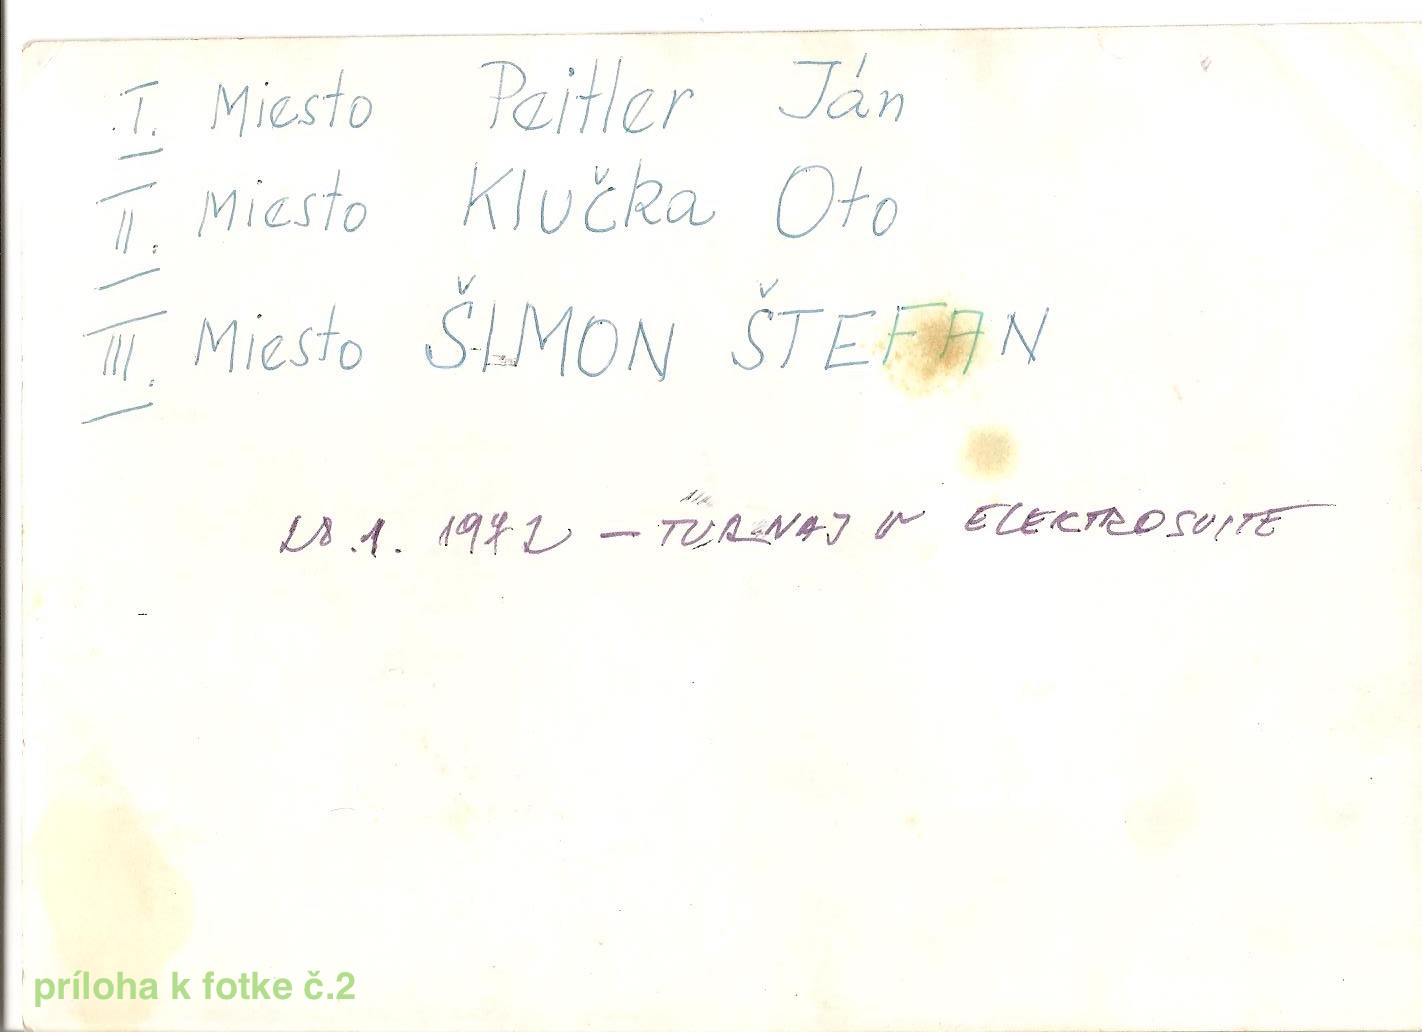 I. Miesto Peitler Ján
II. Miesto Klučka Oto
III. Miesto ŠIMON ŠTEFAN
28.1. 1972 – TURNAJ V ELEKTROSVITE
príloha k fotke č.2